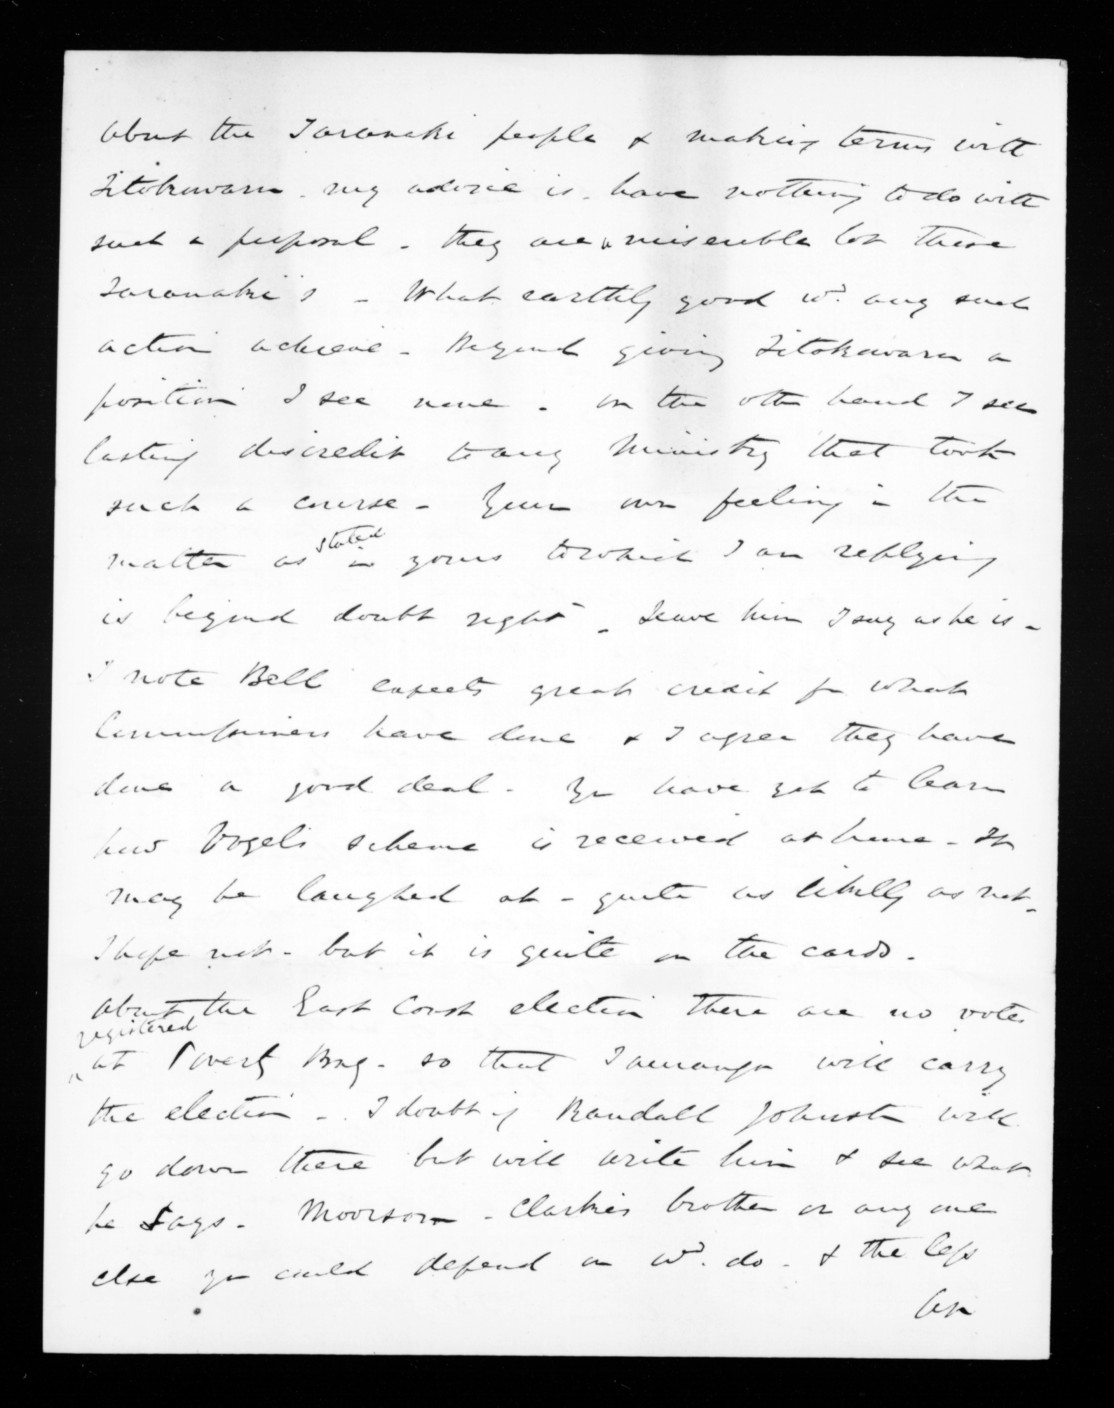 about the Taranaki people & making terms with
Titokowaru. my advice is. have nothing to do with
such a proposal - they are a miserable lot these
Taranaki's - What earthly good wd. any such
action achieve - Beyond giving Titokowaru a
position I see none - on the other hand I see
lasting discredit to any Ministry that took
such a course - Your own feeling in the
matter as stated in yours to which I am replying
is beyond doubt right - Leave him I say as he is -
I note Bell expects great credit for what
Commissioners have done & I agree they have
done a good deal - You have yet to learn
how Vogel's scheme is received at home - It
may be laughed at - quite as likelly as not -
I hope not - but it is quite on the cards -
about the East Coast election there are no votes
registered
at Poverty Bay - so that Tauranga will carry
the election - I doubt if Randall Johnston will
go down there but will write him & see what
he says - Moorsom - Clarkes brother or any one
else you could depend on wd. do - & the less